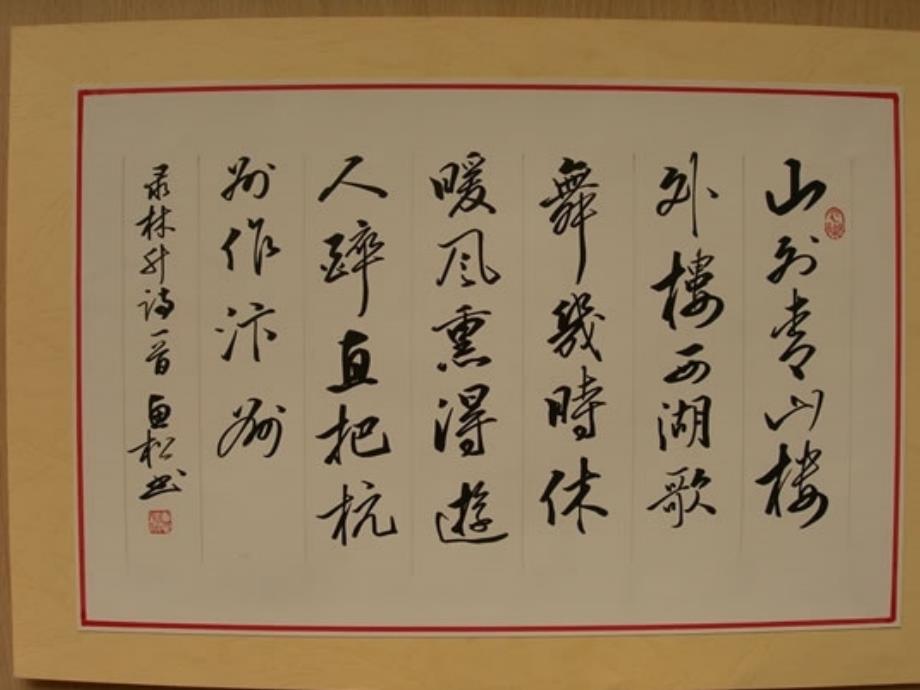 山外青山楼
外樓西湖歌
舞幾時休
暖风熏得遊
人醉直把杭
州作汴州
录林升诗一首 松书